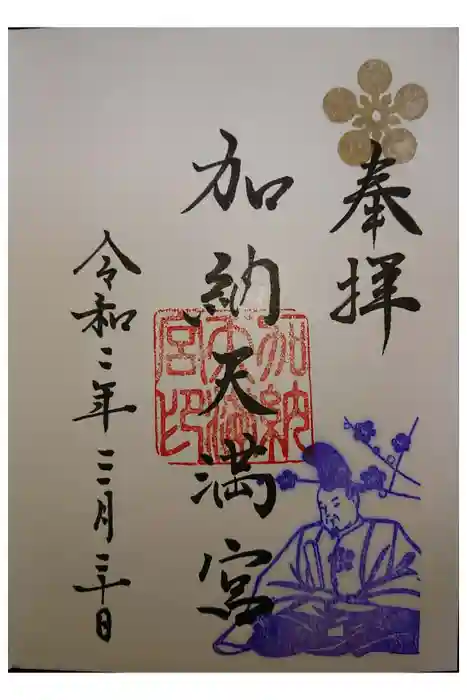 奉拝
加納天満宮
加納天満宮印
令和二年三月三十日